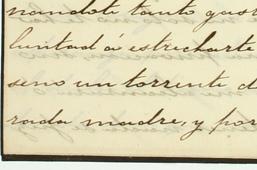 nandote tanto gust
luntad á estrecharte
seno un torrente d
rada madre, y por